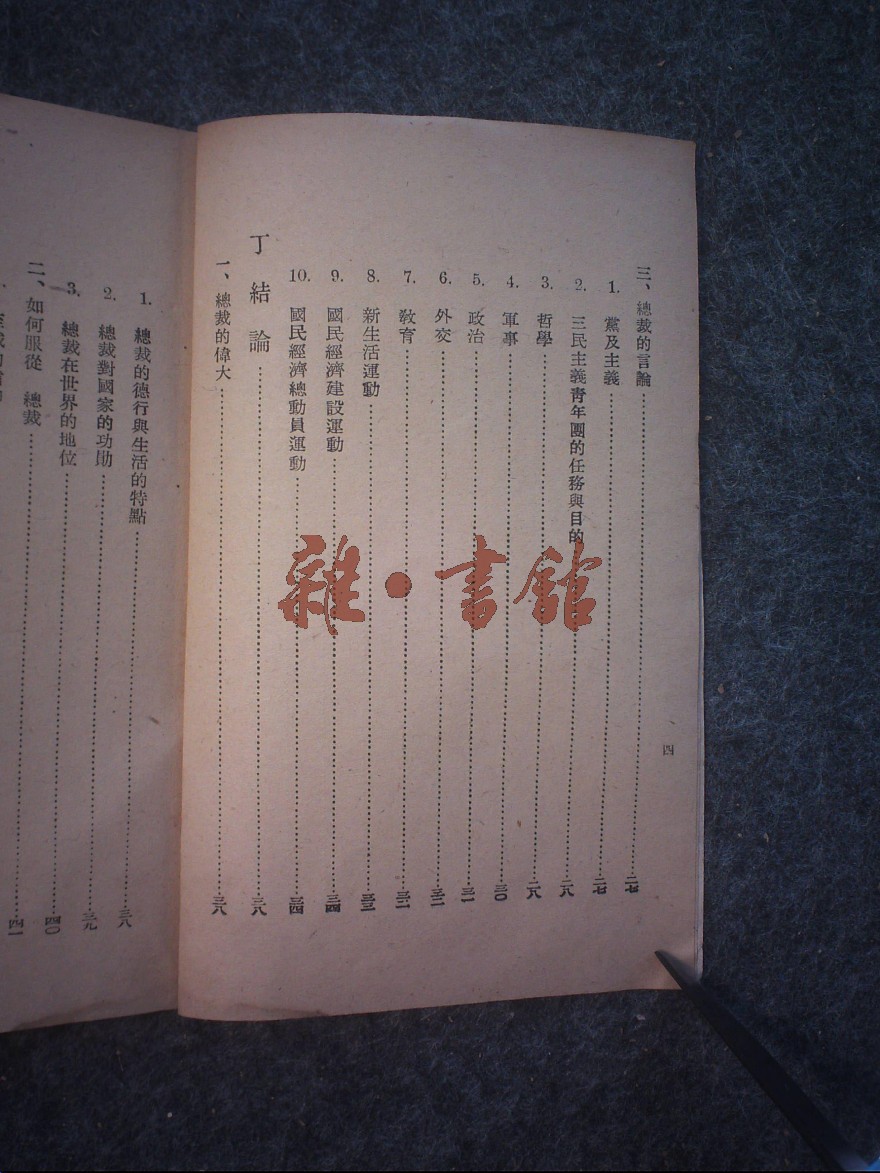 三、總裁的言論……二七
1. 黨及主義……二七
2. 三民主義青年團的任務與目的……二八
3. 哲學……二八
4. 軍事……三〇
5. 政治……三一
6. 外交……三二
7. 教育……三二
8. 新生活運動……三三
9. 國民經濟建設運動……三四
10. 國民經濟總動員運動……三四
丁 結論……三八
一、總裁的偉大……三八
四
1. 總裁的德行與生活的特點……三八
2. 總裁對國家的功勛……三九
3. 總裁在世界的地位……四〇
二、如何服從 總裁……四一
雜·書館